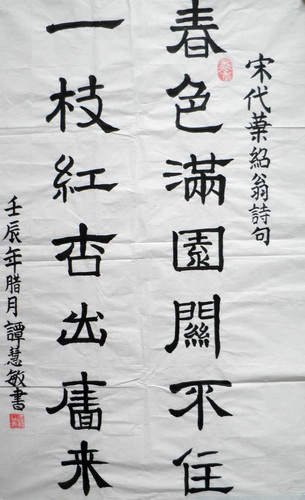 宋代葉紹翁詩句
春色滿園關不住
一枝紅杏出廧来
壬辰年腊月譚慧敏書